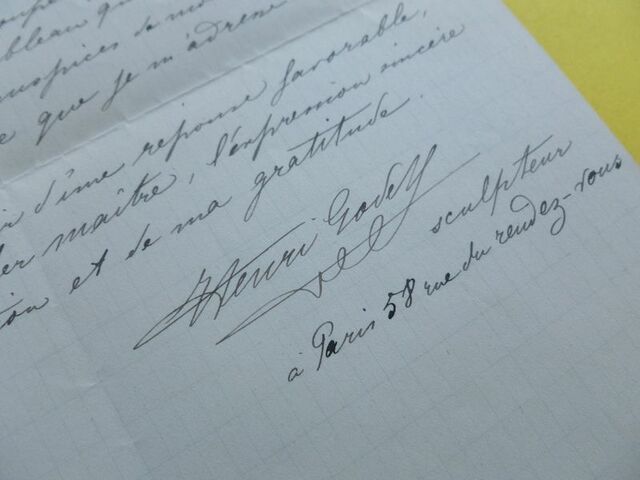 bleau qu
auspices de mo
e que je m'adresse
ir d'une réponse favorable,
er maître, l'expression sincère
tion et de ma gratitude.
Henri Godet
sculpteur
à Paris 58 rue du rendez-vous